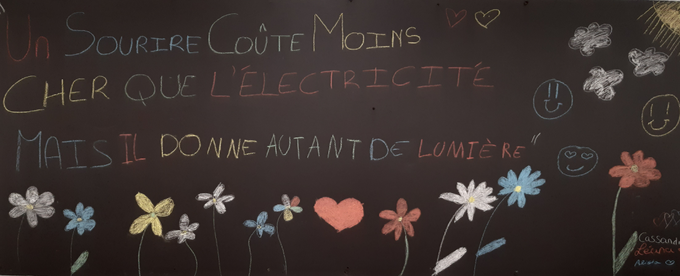 Un Sourire Coûte Moins
Cher que l'électricité
Mais il donne autant de lumière"
Cassandra
Léana